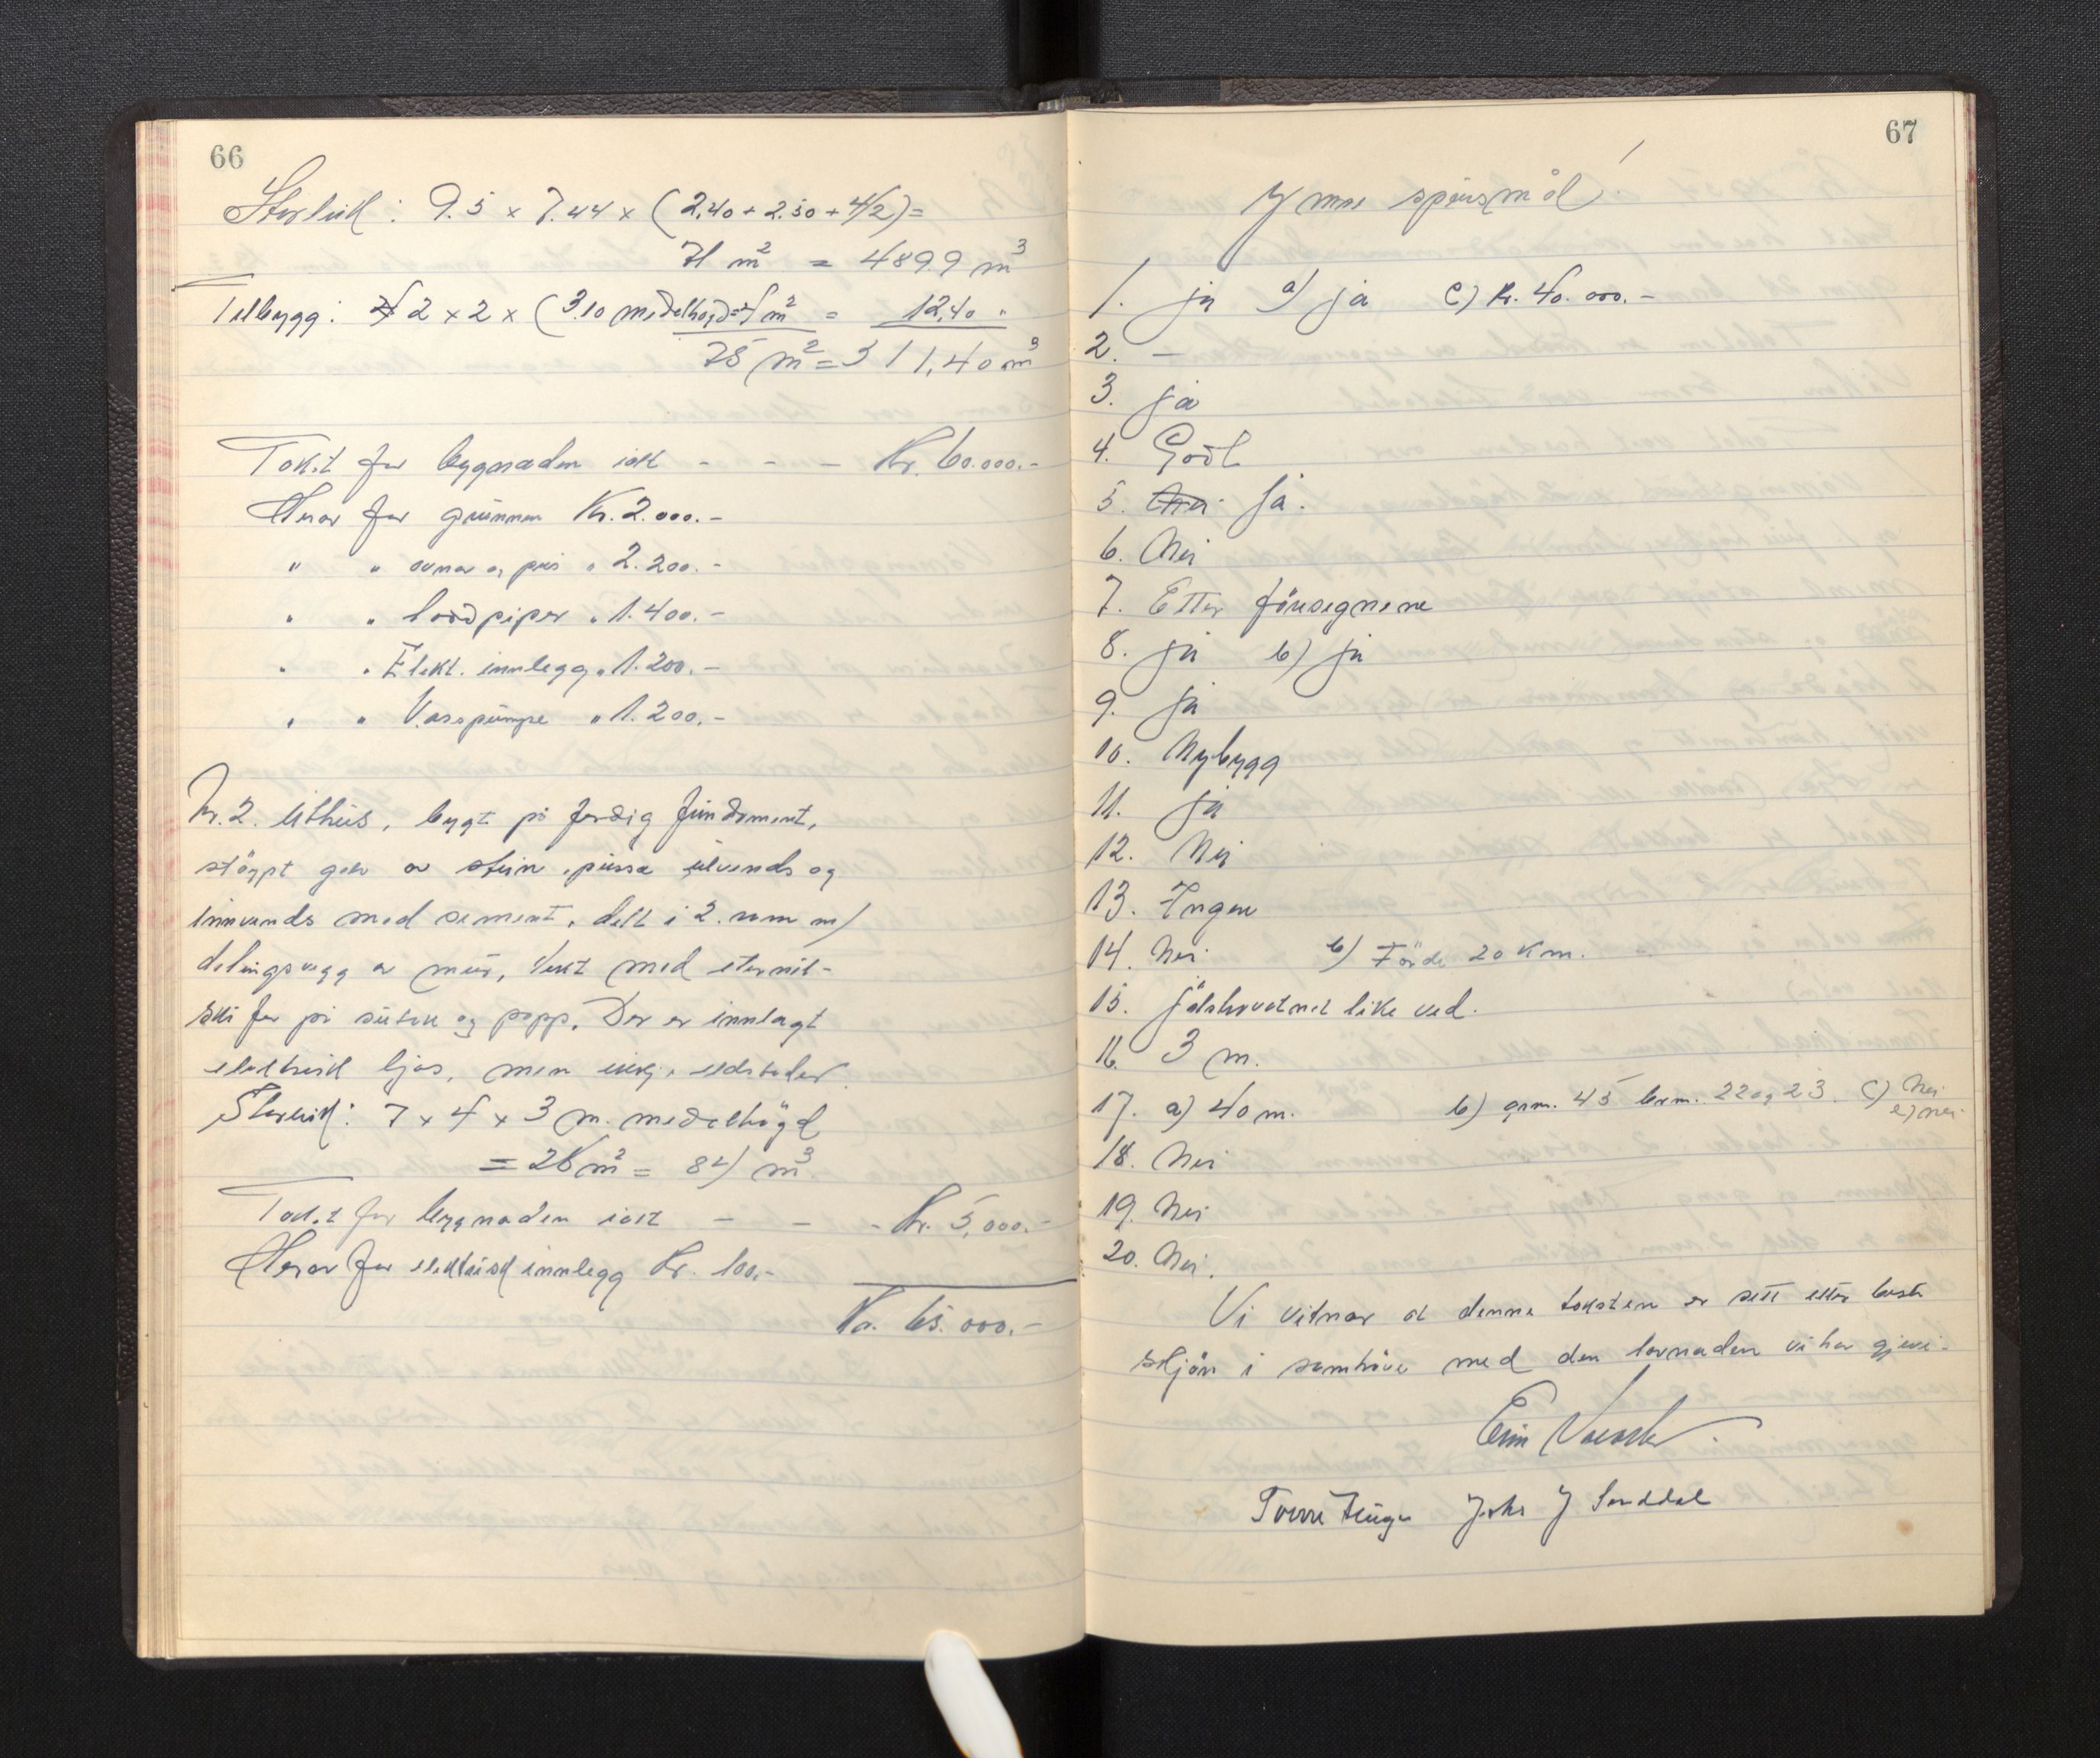 66
Storleik: 9.5 x 7.44 x (2.40 + 2.50 + 4/2) =
71 m² = 489.9 m³
Tilbygg: 2 x 2 x (3.10 medelhøgd = 4 m² = 12,40 "
75 m² = 511,40 m³
Takst for bygnaden ialt - - - Kr. 60.000.-
Herav for grunnen Kr. 2.000.-
" " ovnar og peis " 2.200.-
" " laadpiper " 1.400.-
" " Elekt. innlegg " 1.200.-
" " Vasspumpe " 1.200.-
Nr. 2. Uthus, bygt på ferdig fundament,
stöypt golv av stein, pussa utvends og
innvends med sement, delt i 2. rom m/
delingsvegg av mur, tekt med eternit-
skifer på sutak og papp. Der er innlagt
elektrisk ljos, men ikkje eldstader.
Storleik: 7 x 4 x 3 m. medelhögd
= 28 m² = 84 m³.
Takst for bygnaden ialt - - - Kr. 5,000.-
Herav for elektrisk innlegg Kr. 100,-
Kr. 65.000.-
67
Ymse spursmål!
1. ja a) ja c) kr. 40.000.-
2. -
3. ja
4. Godt
5. Nei Ja.
6. Nei
7. Etter föresegnene
8. ja b) ja
9. ja
10. Nybygg
11. ja
12. Nei
13. Ingen
14. Nei b) Förde 20 km.
15. Jölstravatnet like ved.
16. 3 m.
17. a) 40 m. b) gnm. 45 brm. 22 og 23. c) Nei
e) nei
18. Nei
19. Nei
20. Nei.
Vi vitnar at denne taksten er sett etter beste
skjön i samhöve med den lovnaden vi har gjeve.
John J Sanddal